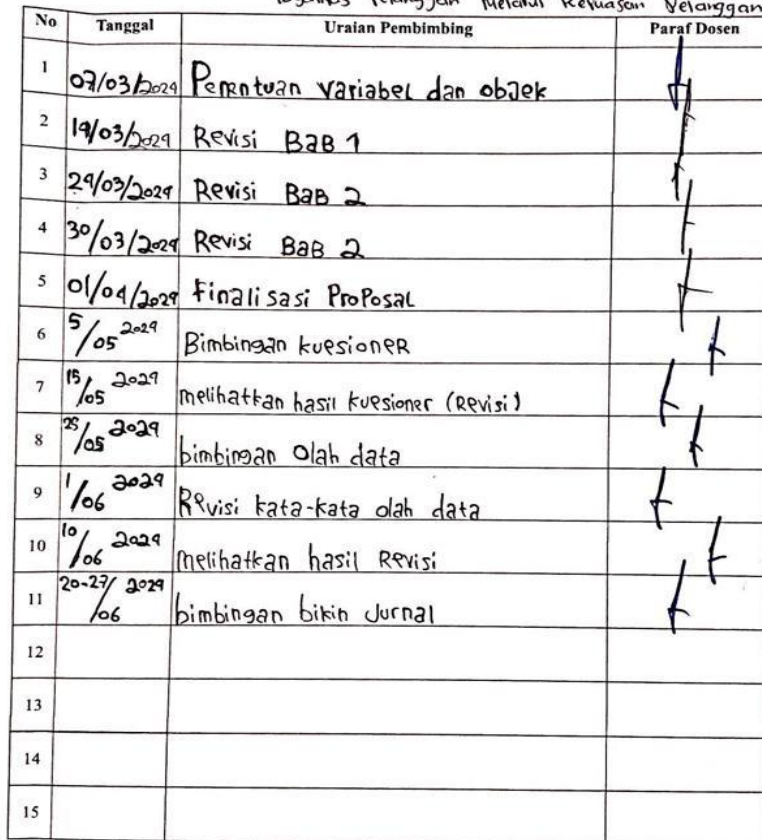 Pelanggan Melalui Kepuasan Pelanggan
No Tanggal Uraian Pembimbing Paraf Dosen
1 07/03/2024 Penentuan variabel dan objek
2 14/03/2024 Revisi BaB 1
3 24/03/2024 Revisi BaB 2
4 30/03/2024 Revisi BaB 2
5 01/04/2024 Finalisasi ProPosal
6 5/05 2024 Bimbingan kuesioneR
7 15/05 2024 melihatkan hasil kuesioner (Revisi)
8 25/05 2024 bimbingan Olah data
9 1/06 2024 Revisi kata-kata olah data
10 10/06 2024 melihatkan hasil Revisi
11 20-27/06 2024 bimbingan bikin Jurnal
12
13
14
15